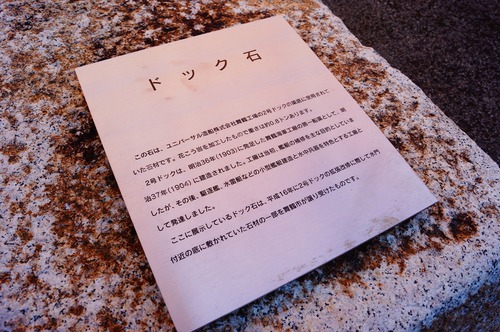 ドック石
この石は、ユニバーサル造船株式会社舞鶴工場の2号ドックの渠底に使用されて
いた石材です。花こう岩を加工したもので重さは約0.8トンあります。
2号ドックは、明治36年(1903)に発足した舞鶴海軍工廠の第一船渠として、明
治37年(1904)に建造されました。工廠は当初、艦艇の補修を主な目的としていま
したが、その後、駆逐艦、水雷艇などの小型艦艇建造と水中兵器を特色とする工廠と
して発達しました。
ここに展示しているドック石は、平成16年に2号ドックの拡張改修に際して水門
付近の底に敷かれていた石材の一部を舞鶴市が譲り受けたものです。